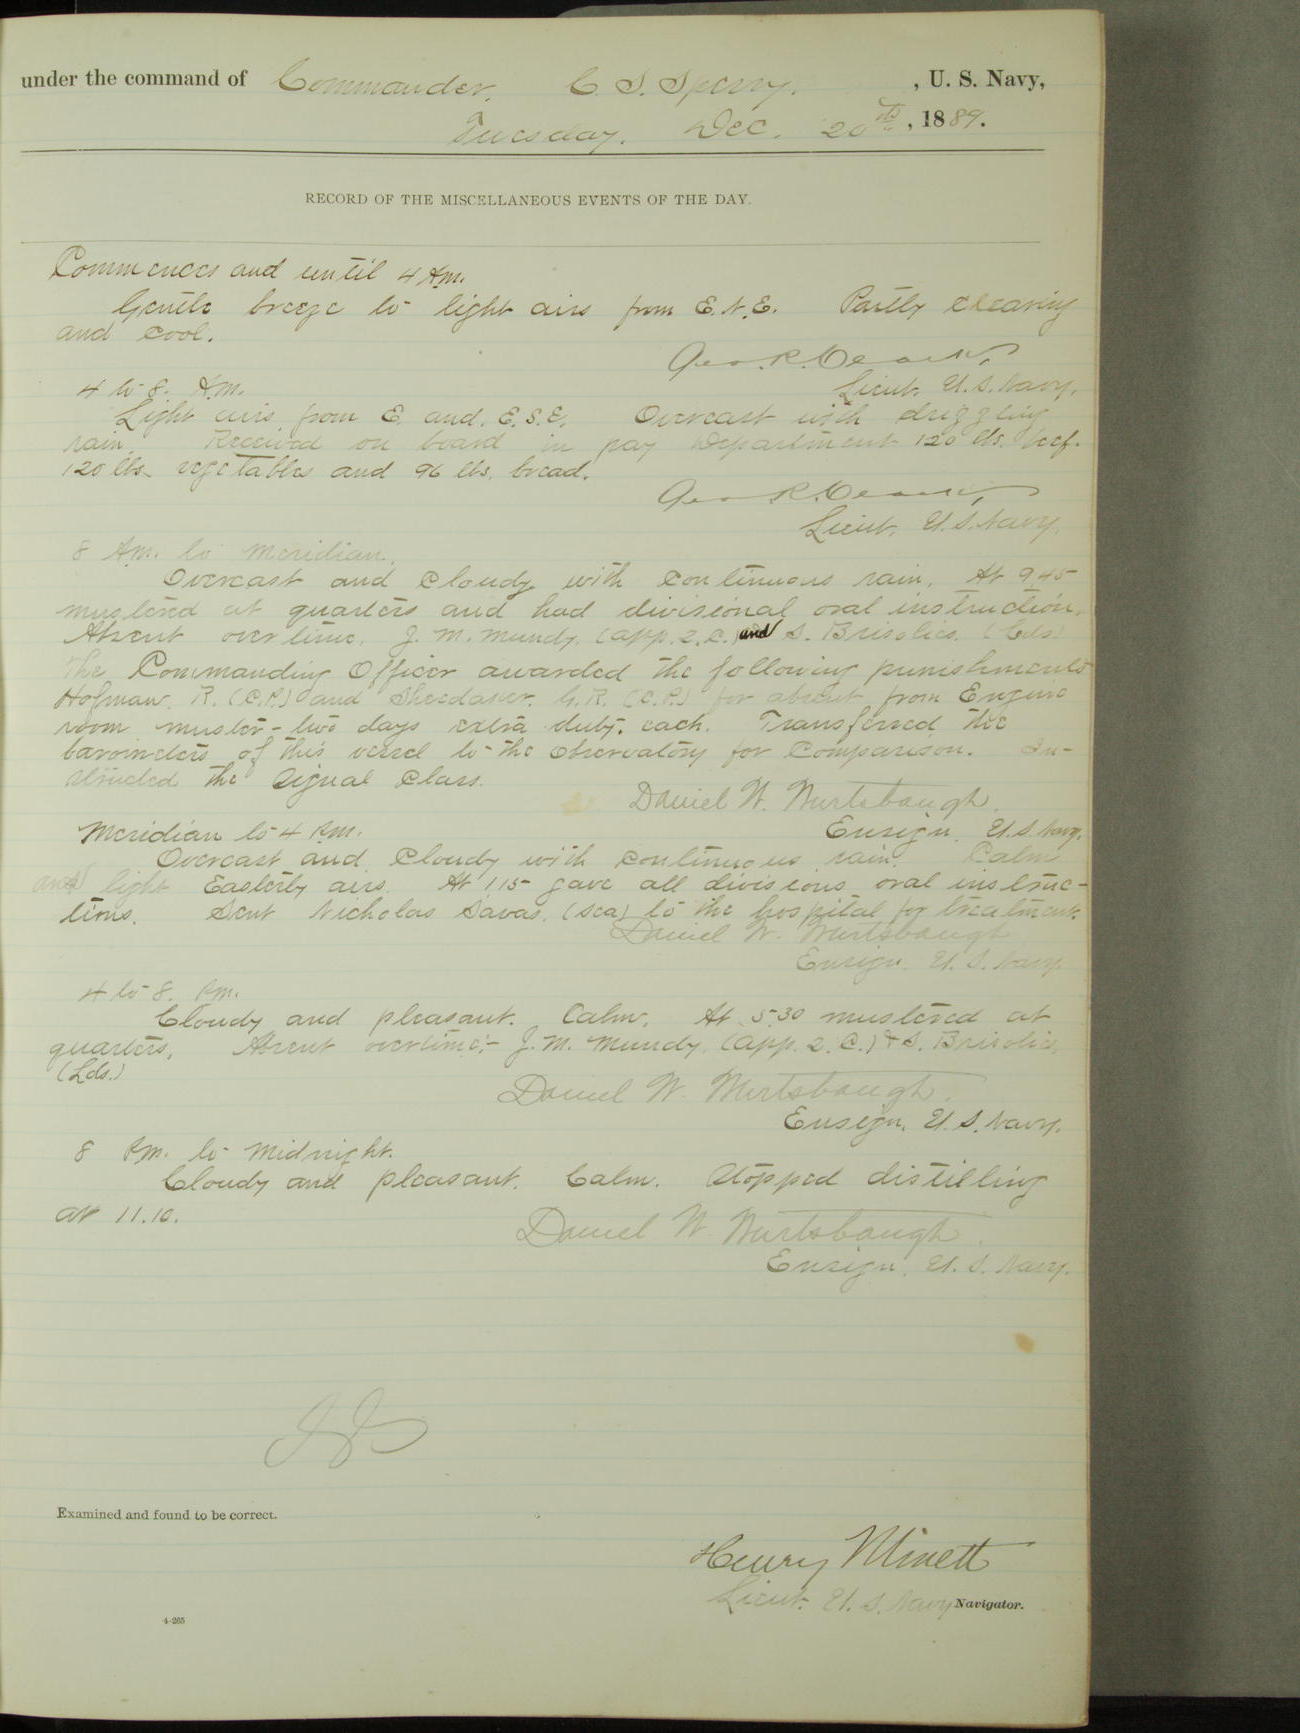 under the command of Commander, C. S. Sperry. , U. S. Navy,
Tuesday. Dec. 20th , 1889.
RECORD OF THE MISCELLANEOUS EVENTS OF THE DAY.
Commences and until 4 Am.
Gentle breeze to light airs from E.N.E. Partly clearing
and cool.
Geo. R.
Lieut. U.S. Navy.
4 to 8. A.M.
Light airs from E. and. E.S.E. Overcast with drizzling
rain. Received on board in pay Department 120 lbs. beef.
120 lbs. vegetables and 96 lbs. bread.
Geo. R.
Lieut. U.S. Navy.
8 Am. to Meridian.
Overcast and cloudy with continuous rain. At 9.45
mustered at quarters and had divisional oral instruction.
Absent over time. J. M. Mundy. (app. 2. C.) and S. Brisolies. (Lds)
The Commanding Officer awarded the following punishments
Hofman, R. (C.P.) and G.R. (C.P.) for absent from Engine
room muster - two days extra duty. each. Transferred the
barometers of this vessel to the Observatory for Comparison. In-
structed the Signal Class.
Daniel W. Wurtsbaugh.
Ensign. U.S. Navy.
Meridian to 4 Pm.
Overcast and cloudy with continuous rain. Calm
and light Easterly airs. At 1.15 gave all divisions oral instruc-
tions. Sent Nicholas Savas. (Sea) to the hospital for treatment.
Daniel W. Wurtsbaugh
Ensign. U.S. Navy.
4 to 8. Pm.
Cloudy and pleasant. Calm. At 5.30 mustered at
quarters. Absent overtime:- J. M. Mundy. (app. 2. C.) & S. Brisolies.
(Lds.)
Daniel W. Wurtsbaugh.
Ensign. U.S. Navy.
8 Pm. to Midnight.
Cloudy and pleasant. Calm. Stopped distilling
at 11.10.
Daniel W. Wurtsbaugh.
Ensign. U.S. Navy.
Examined and found to be correct.
Henry Minett
Lieut. U.S. Navy Navigator.
4-265